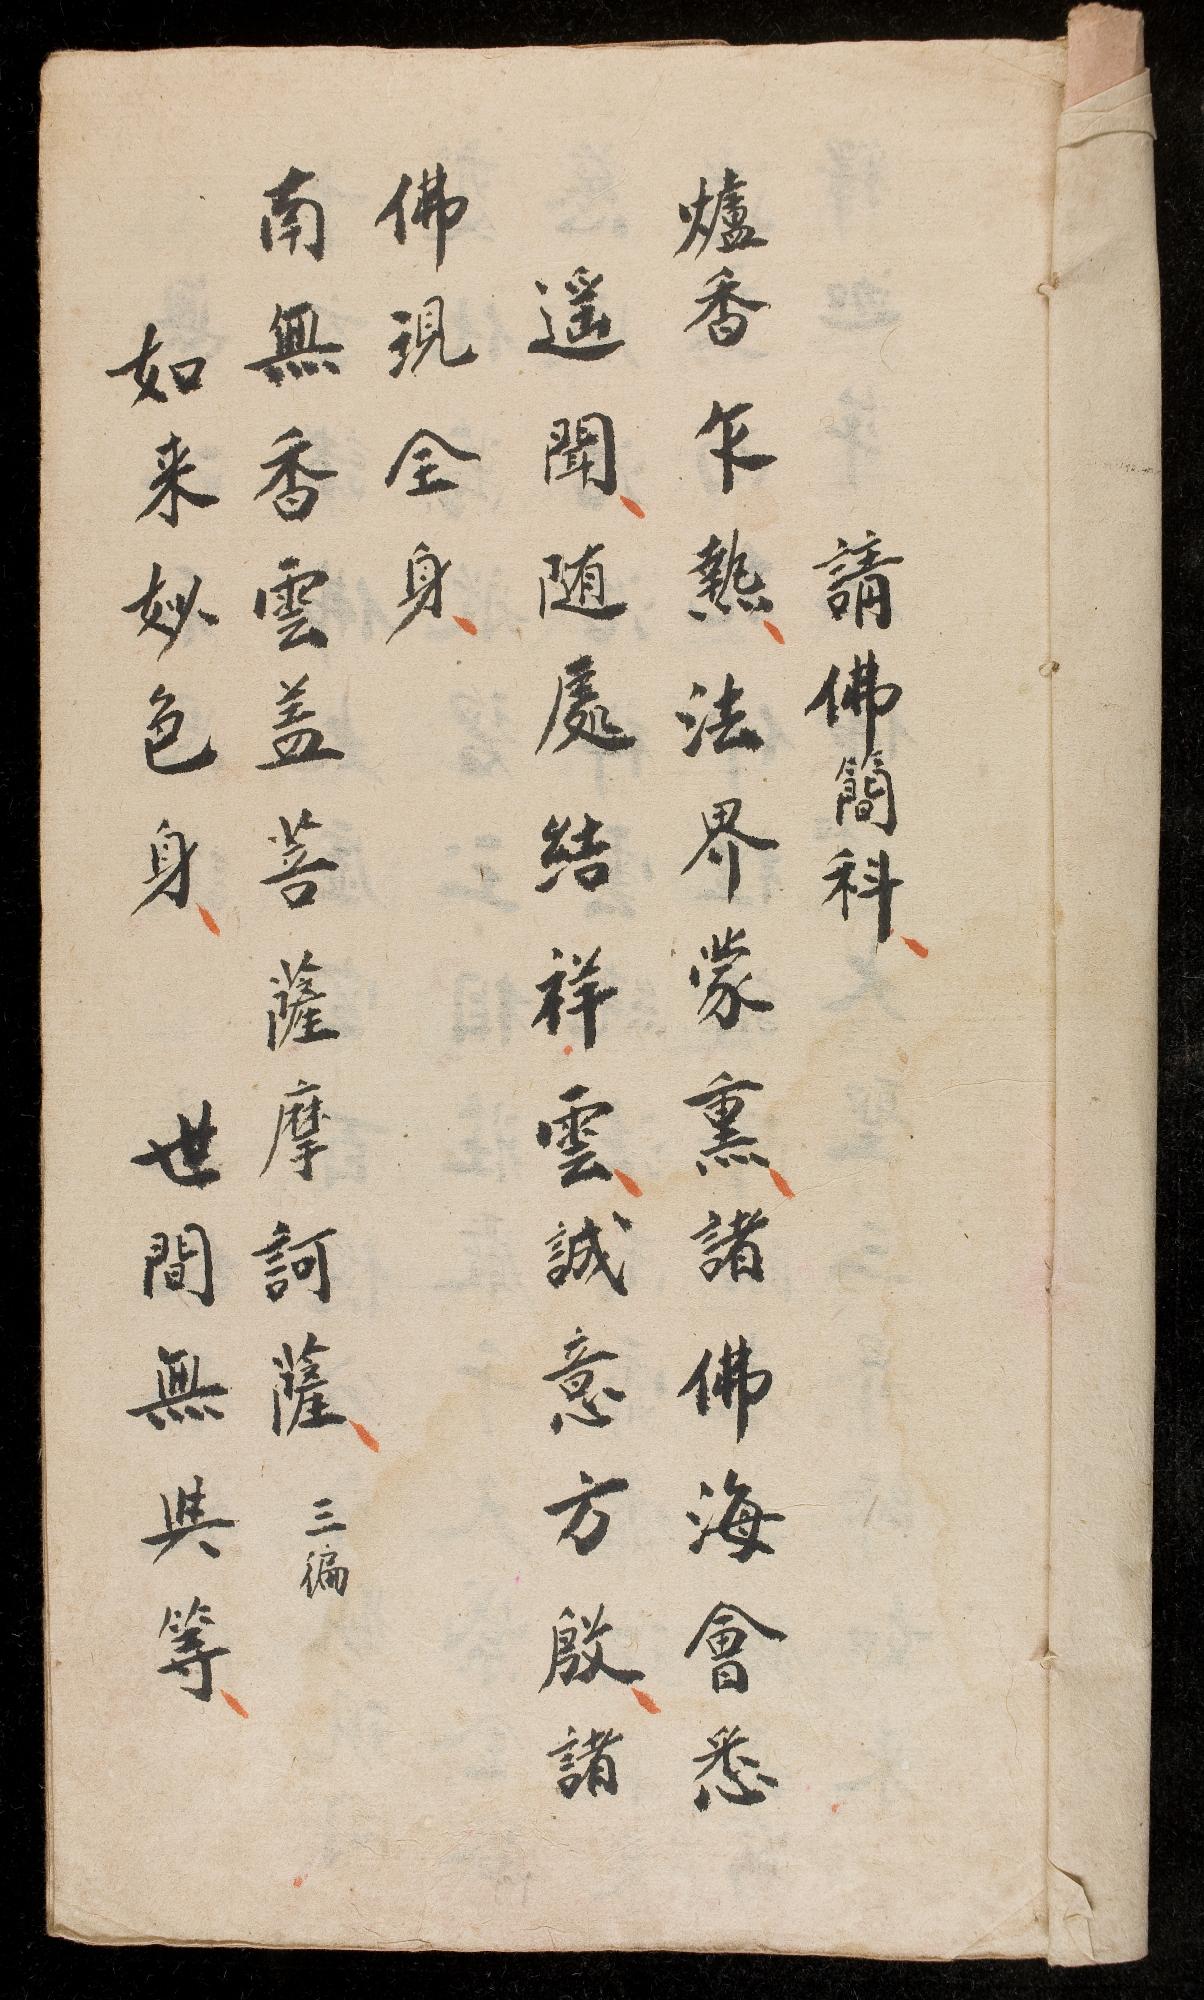 請佛簡科
爐香乍熱法界蒙熏諸佛海會悉
遥聞随處結祥雲誠意方殷諸
佛現全身
南無香雲盖菩薩摩訶薩 三徧
如来妙色身 世間無與等